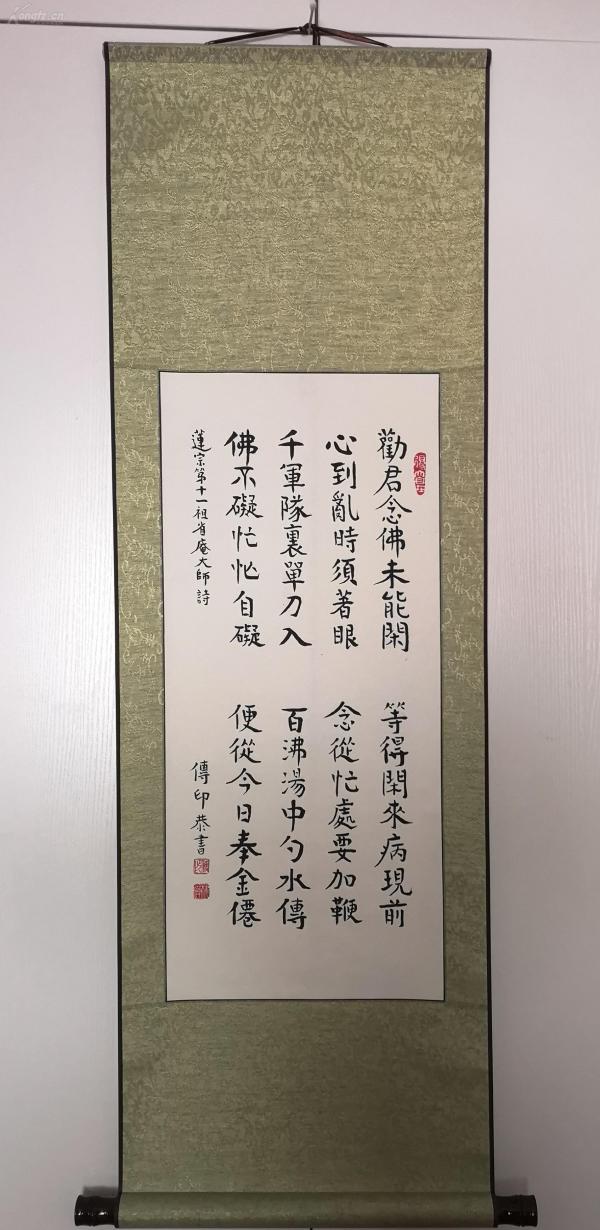 勸君念佛未能閑 等得閑來病現前
心到亂時須著眼 念從忙處要加鞭
千軍隊裏單刀入 百沸湯中勺水傳
佛不礙忙忙自礙 便從今日奉金僊
蓮宗第十一祖省庵大師詩 傳印恭書
Kongfz.cn